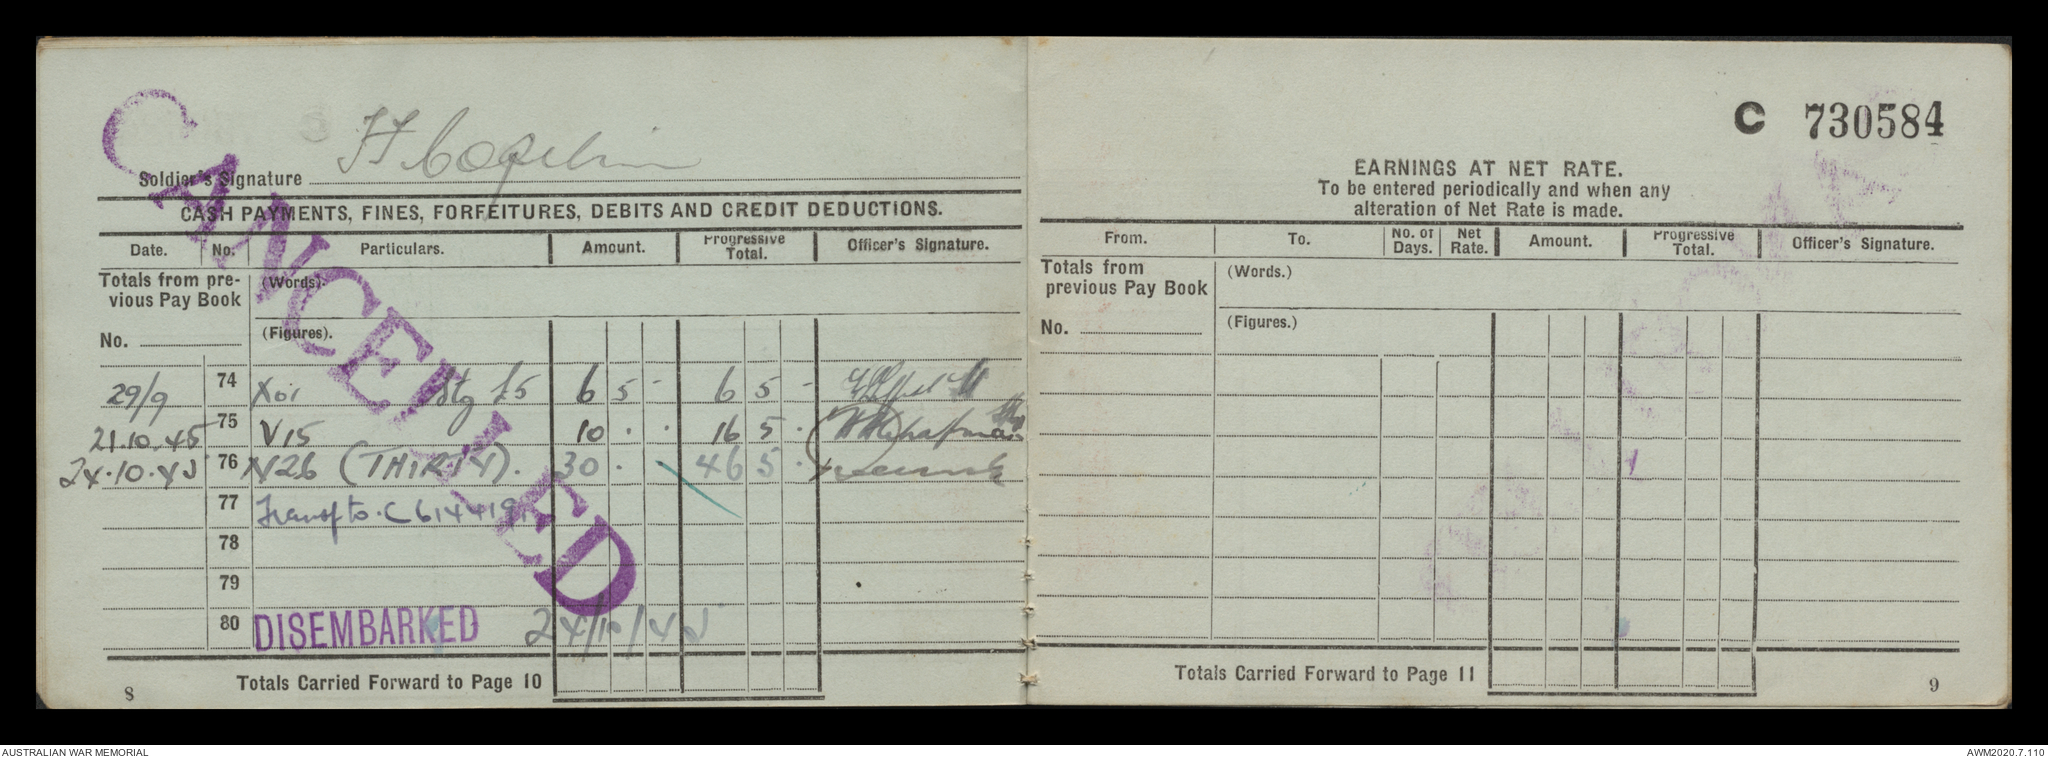 CANCELLED
Soldier's Signature
CASH PAYMENTS, FINES, FORFEITURES, DEBITS AND CREDIT DEDUCTIONS.
Date. No. Particulars. Amount. Progressive Total. Officer's Signature.
Totals from previous Pay Book (Words).
No. (Figures).
29/9 74 Stg £5 6 5 - 6 5 -
21.10.45 75 V15 10 . . 16 5 .
24.10.45 76 N26 (THIRTY). 30 . 46 5 .
77 Transf to. C614419
78
79
80 DISEMBARKED 24/10/45
Totals Carried Forward to Page 10
8
C 730584
EARNINGS AT NET RATE.
To be entered periodically and when any
alteration of Net Rate is made.
From. To. No. of Days. Net Rate. Amount. Progressive Total. Officer's Signature.
Totals from previous Pay Book (Words.)
No. (Figures.)
Totals Carried Forward to Page 11
9
AUSTRALIAN WAR MEMORIAL
AWM2020.7.110